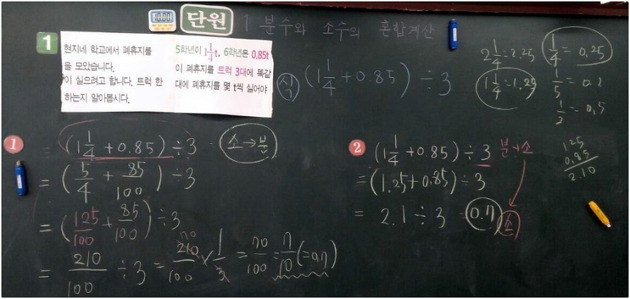 단원
1 분수와 소수의 혼합계산
1
현지네 학교에서 폐휴지를
을 모았습니다.
이 실으려고 합니다. 트럭 한
하는지 알아봅시다.
5학년이 1 1/4 t, 6학년은 0.85t
이 폐휴지를 트럭 3대에 똑같
대에 폐휴지를 몇 t씩 실어야
식 (1 1/4 + 0.85) ÷ 3
2 1/4 = 2.25
1 1/4 = 1.25
1/4 = 0.25
1/5 = 0.2
1/2 = 0.5
1
= (1 1/4 + 0.85) ÷ 3 소→분
= (5/4 + 85/100) ÷ 3
= (125/100 + 85/100) ÷ 3
= 210/100 ÷ 3 = 210/100 × 1/3 = 70/100 = 7/10 (=0.7)
70
2
(1 1/4 + 0.85) ÷ 3 분→소
= (1.25 + 0.85) ÷ 3
= 2.1 ÷ 3 = 0.7 소
1.25
0.85
2.10